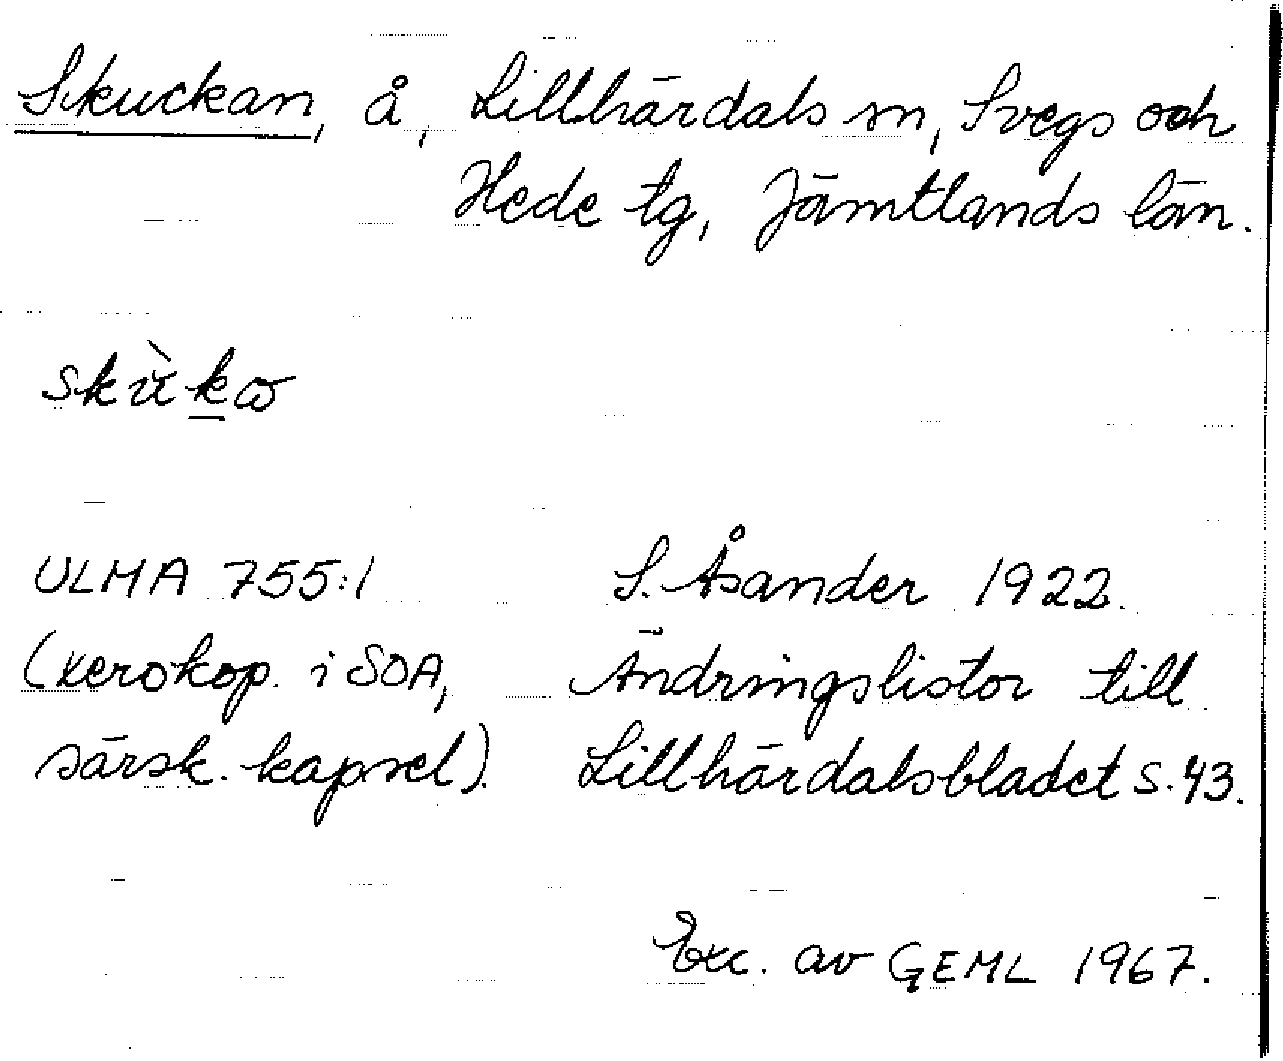 Skuckan, å, Lillhärdals sn, Svegs och
Hede tg, Jämtlands län.
ULMA 755:1 S. Åsander 1922.
(xerokop. i SOA, Ändringslistor till
särsk. kapsel). Lillhärdalsbladet s. 43.
Exc. av GEML 1967.